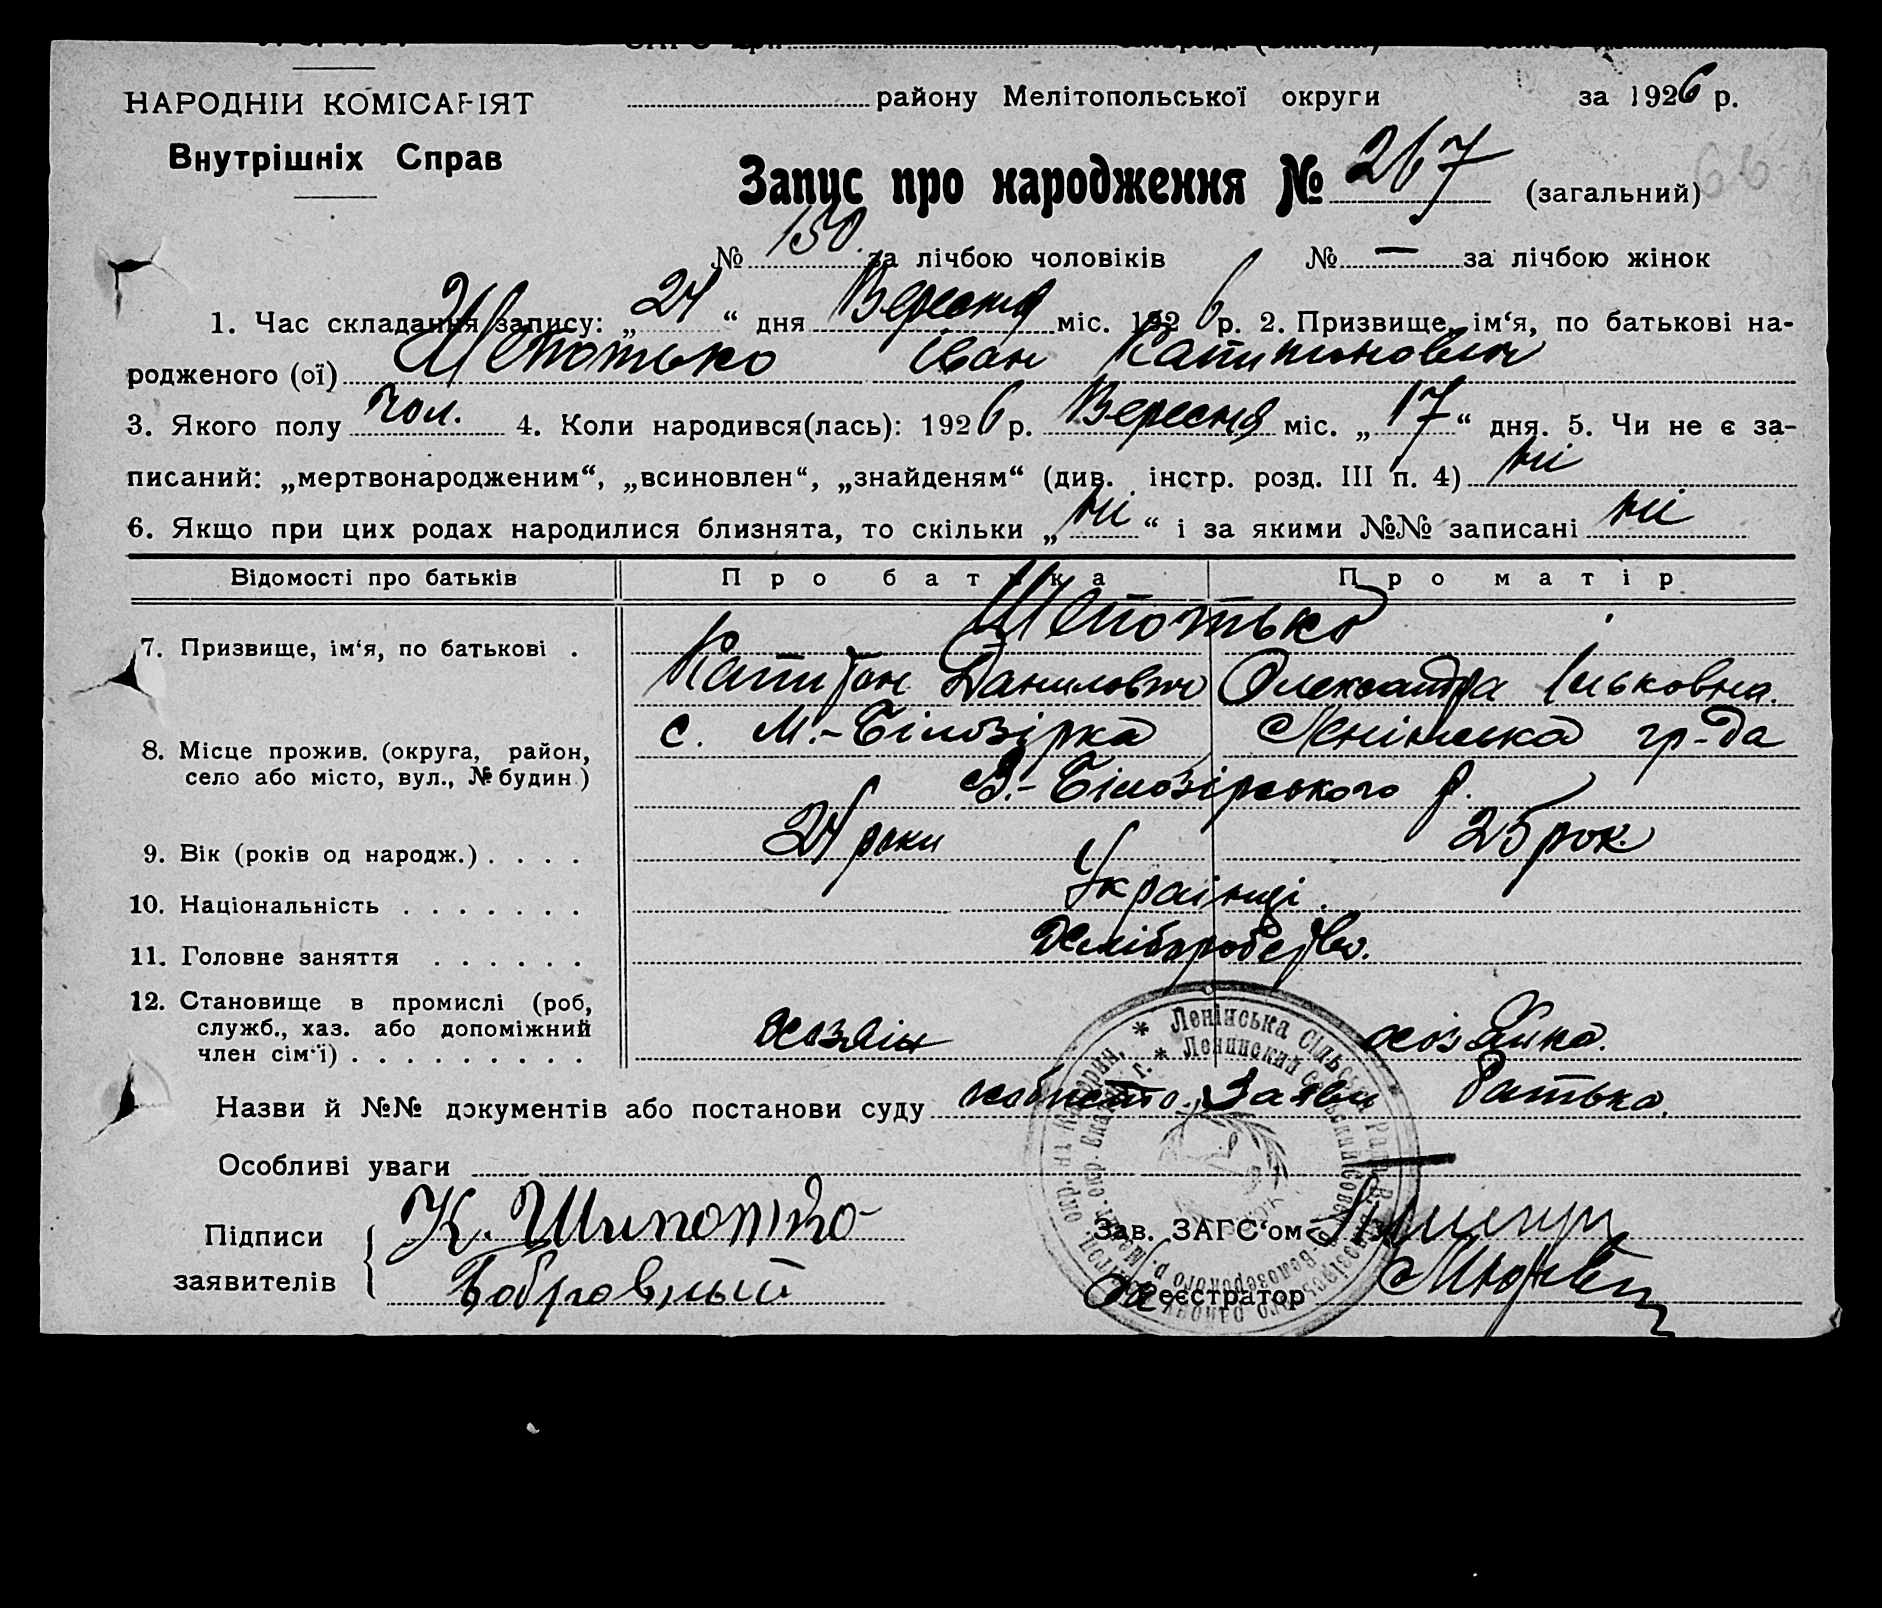 НАРОДНІЙ КОМІСАРІЯТ
Внутрішніх Справ
району Мелітопольської округи за 1926 р.
Запис про народження № 267 (загальний)
66
№ 150 за лічбою чоловіків № — за лічбою жінок
1. Час складання запису: „24“ дня Вересня міс. 1926 р. 2. Призвище, ім‘я, по батькові на-
родженого (ої) Шепотько Іван Капитонович
3. Якого полу чол. 4. Коли народився(лась): 1926 р. Вересня міс. „17“ дня. 5. Чи не є за-
писаний: „мертвонародженим“, „всиновлен“, „знайденям“ (див. інстр. розд. III п. 4) ні
6. Якщо при цих родах народилися близнята, то скільки „ні“ і за якими №№ записані ні
Відомості про батьків Про батька Про матір
Шепотько
7. Призвище, ім‘я, по батькові .
Капитон Данилович Олександра Ільковна.
8. Місце прожив. (округа, район, село або місто, вул., № будин.)
с. М.-Білозірка Ленінська гр-да
В.-Білозірського р.
9. Вік (років од народж.) . . . . 24 роки 25 рок.
10. Національність . . . . . . . Українці.
11. Головне заняття . . . . . . Хліборобство.
12. Становище в промислі (роб,
служб., хаз. або допоміжний
член сім‘ї) . . . . . . . . . хозяїн хозяйка.
Назви й №№ документів або постанови суду особисто. Заяви батька.
Особливі уваги —
Підписи
заявителів
К. Шипотко
Бобровный
Зав. ЗАГС‘ом
Реєстратор
Ленінська Сільська Рада
Ленинский